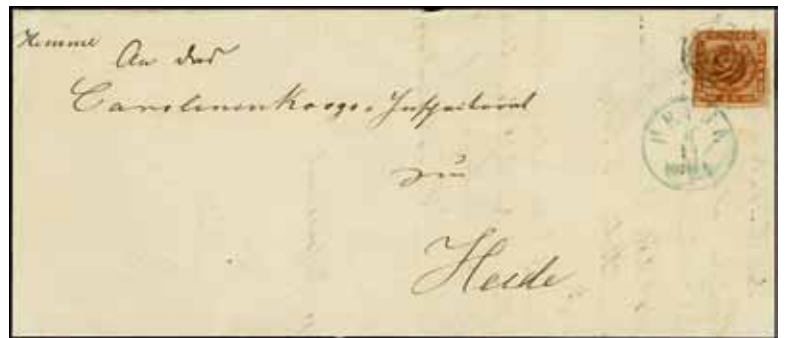 Hemme
An das
Carolinenkoogs-Inspectorat
zu
Heide